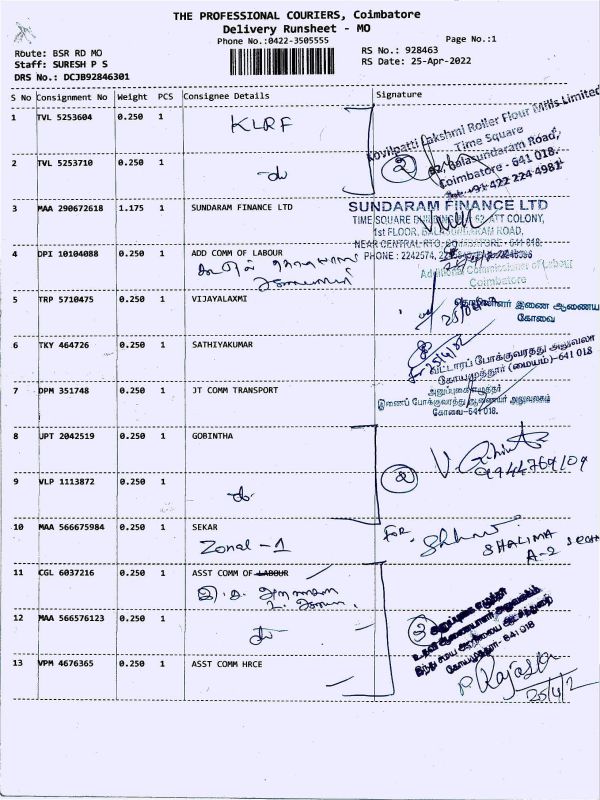 THE PROFESSIONAL COURIERS, Coimbatore
Delivery Runsheet - MO
Phone No.:0422-3505555
Page No.:1
Route: BSR RD MO
Staff: SURESH P S
DRS No.: DCJB92846301
RS No.: 928463
RS Date: 25-Apr-2022
S No Consignment No Weight PCS Consignee Details Signature
1 TVL 5253604 0.250 1 KLRF
Kovilpatti Lakshmi Roller Flour Mills Limited
Time Square
62, Balasundaram Road,
Coimbatore - 641 018.
Tel: +91 422 224 4981
2 TVL 5253710 0.250 1 do
3 MAA 290672618 1.175 1 SUNDARAM FINANCE LTD
SUNDARAM FINANCE LTD
TIME SQUARE BUILDING 62, ATT COLONY,
1st FLOOR, BALASUNDARAM ROAD,
NEAR CENTRAL RTO, COIMBATORE - 641 018.
PHONE : 2242574,
4 DPI 10104088 0.250 1 ADD COMM OF LABOUR
Additional Commissioner of Labour
Coimbatore
5 TRP 5710475 0.250 1 VIJAYALAXMI
தொழிலாளர் இணை ஆணைய
கோவை
6 TKY 464726 0.250 1 SATHIYAKUMAR
வட்டாரப் போக்குவரத்து அலுவலர்
கோயமுத்தூர் (மையம்)-641 018
7 DPM 351748 0.250 1 JT COMM TRANSPORT
இணைப் போக்குவரத்து ஆணையர் அலுவலகம்
கோவை-641 018.
8 UPT 2042519 0.250 1 GOBINTHA
9944769109
9 VLP 1113872 0.250 1 do
10 MAA 566675984 0.250 1 SEKAR
Zonal - 1
FOR
SHALIMA
A-2 SECTION
11 CGL 6037216 0.250 1 ASST COMM OF LABOUR
12 MAA 566576123 0.250 1 do
உதவி ஆணையாளர் அலுவலகம்
இந்து சமய அறநிலையத் துறை
கோயமுத்தூர்- 641 018
13 VPM 4676365 0.250 1 ASST COMM HRCE
P. Rajasa
25/4/2